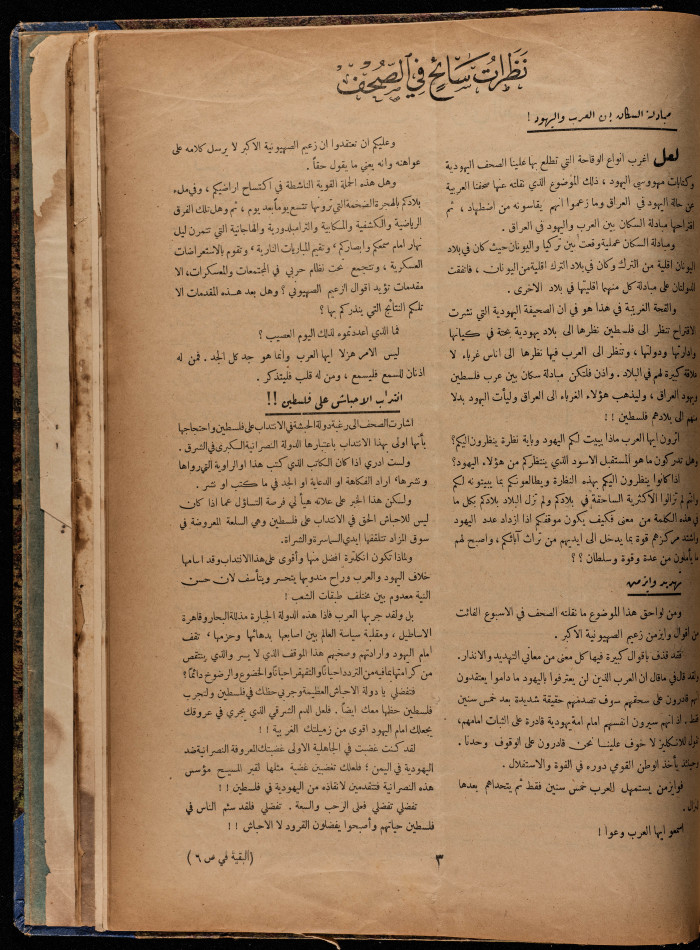 نظرات سائح في الصحف
مبادلة السكان بين العرب واليهود !
لعل اغرب انواع الوقاحة التي تطلع بها علينا الصحف اليهودية
وكتابات مهووسي اليهود ، ذلك الموضوع الذي نقلته عنها صحفنا العربية
عن حالة اليهود في العراق وما زعموا انهم يقاسونه من اضطهاد ، ثم
اقتراحها مبادلة السكان بين العرب واليهود في العراق .
ومبادلة السكان عملية وقعت بين تركيا واليونان حيث كان في بلاد
اليونان اقلية من الترك وكان في بلاد الترك اقلية من اليونان ، فاتفقت
الدولتان على مبادلة كل منهما اقليتها في بلاد الاخرى .
والقحة الغريبة في هذا هو في ان الصحيفة اليهودية التي نشرت
الاقتراح تنظر الى فلسطين نظرها الى بلاد يهودية بحتة في كيانها
وادارتها ودولتها ، وتنظر الى العرب فيها نظرها الى اناس غرباء لا
علاقة كبيرة لهم في البلاد . واذن فلتكن مبادلة سكان بين عرب فلسطين
ويهود العراق ، وليذهب هؤلاء الغرباء الى العراق وليأت اليهود بدلا
منهم الى بلادهم فلسطين ! !
اترون ايها العرب ماذا يبيت لكم اليهود وبأية نظرة ينظرون اليكم؟
وهل تدركون ما هو المستقبل الاسود الذي ينتظركم من هؤلاء اليهود؟
اذا كانوا ينظرون اليكم بهذه النظرة ويطالعونكم بما يبيتونه لكم
وانتم لم تزالوا الأكثرية الساحقة في بلادكم ولم تزل البلاد بلادكم بكل ما
في هذه الكلمة من معنى فكيف يكون موقفكم اذا ازداد عدد اليهود
واشتد مركزهم قوة بما يدخل الى ايديهم من تراث آبائكم ، واصبح لهم
ما يأملون من عدة وقوة وسلطان ؟ ؟
تهديد وايزمن
ومن لواحق هذا الموضوع ما نقلته الصحف في الاسبوع الفائت
من اقوال وايزمن زعيم الصهيونية الاكبر .
فقد قذف باقوال كبيرة فيها كل معنى من معاني التهديد والانذار.
ولقد قال في ما قال ان العرب الذين لن يعترفوا باليهود ما داموا يعتقدون
انهم قادرون على سحقهم سوف تصدمهم حقيقة شديدة بعد خمس سنين
فقط . اذ انهم سيرون انفسهم امام امة يهودية قادرة على الثبات امامهم،
تقول للانكليز لا خوف علينا نحن قادرون على الوقوف وحدنا .
وحينئذ يأخذ الوطن القومي دوره في القوة والاستقلال .
فوايزمن يستمهل العرب خمس سنين فقط ثم يتحداهم بعدها
اسمعوا ايها العرب وعوا !
وعليكم ان تعتقدوا ان زعيم الصهيونية الاكبر لا يرسل كلامه على
عواهنه وانه يعني ما يقول حقاً .
وهل هذه الحملة القوية الناشطة في اكتساح اراضيكم ، وفي ملء
بلادكم بالهجرة الضخمة التي ترونها تتسع يوماً بعد يوم ، ثم وهل تلك الفرق
الرياضية والكشفية والمكابية والترامبلدورية والهاجانية التي تتمرن ليل
نهار امام سمعكم وابصاركم ، وتقيم المباريات النارية ، وتقوم بالاستعراضات
العسكرية ، وتتجمع تحت نظام حربي في المجتمعات والمعسكرات، الا
مقدمات تؤيد اقوال الزعيم الصهيوني ؟ وهل بعد هذه المقدمات الا
تلكم النتائج التي ينذركم بها ؟
فما الذي اعددتموه لذلك اليوم العصيب ؟
ليس الامر هزلا ايها العرب وانما هو جد كل الجد . فمن له
اذنان للسمع فليسمع ، ومن له قلب فليتذكر .
اقتراب الاحباش على فلسطين !!
اشارت الصحف الى رغبة دولة الحبشة في الانتداب على فلسطين واحتجاجها
بأنها اولى بهذا الانتداب باعتبارها الدولة النصرانية الكبرى في الشرق .
ولست ادري اذا كان الكاتب الذي كتب هذا او الراوية التي رواها
ونشرها اراد الفكاهة او الدعابة او الجد في ما كتب او نشر .
ولكن هذا الخبر على علاته هيأ لي فرصة التساؤل عما اذا كان
ليس للاحباش الحق في الانتداب على فلسطين وهي السلعة المعروضة في
سوق المزاد تتلقفها ايدي السماسرة والشراة.
ولماذا تكون انكلترة افضل منها وأقوى على هذا الانتداب وقد اسامها
خلاف اليهود والعرب وراح مندوبها يتحسر ويتأسف لان حسن
النية معدوم بين مختلف طبقات الشعب !
بل ولقد جربها العرب فاذا هذه الدولة الجبارة مذللة البحار وقاهرة
الاساطيل ، ومقلبة سياسة العالم بين اصابعها بدهائها وحزمها ، تقف
أمام اليهود وارادتهم وصخبهم هذا الموقف الذي لا يسر والذي ينتقص
من كرامتها بما فيه من التردد احياناً والتقهقر احياناً والخضوع والرضوخ دائماً؟
فتفضلي يا دولة الاحباش العظيمة وجربي حظك في فلسطين ولتجرب
فلسطين حظها معك ايضاً . فلعل الدم الشرقي الذي يجري في عروقك
يجعلك امام اليهود اقوى من زميلتك الغربية ! !
لقد كنت غضبت في الجاهلية الاولى غضبتك المعروفة النصرانية ضد
اليهودية في اليمن ؛ فلعلك تغضبين غضبة مثلها لقبر المسيح مؤسس
هذه النصرانية فتتقدمين لانقاذه من اليهودية في فلسطين ! !
تفضلي تفضلي فعلى الرحب والسعة . تفضلي فلقد سئم الناس في
فلسطين حياتهم وأصبحوا يفضلون القرود لا الاحباش ! !
(البقية في ص ٦ )
٣